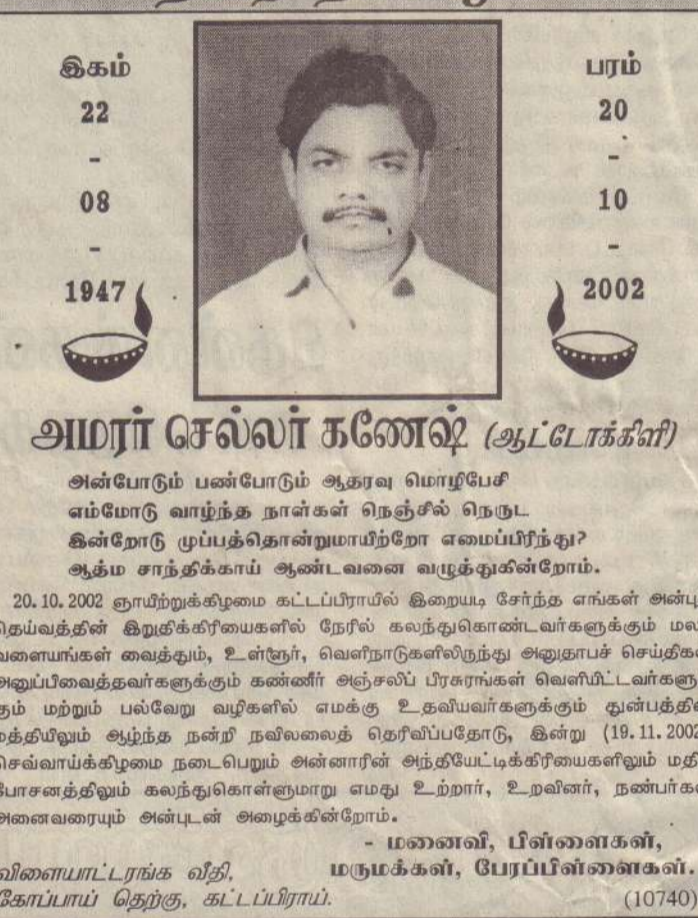 இகம்
22
-
08
-
1947
பரம்
20
-
10
-
2002
அமரர் செல்லர் கணேஷ் (ஆட்டோக்கிளி)
அன்போடும் பண்போடும் ஆதரவு மொழிபேசி
எம்மோடு வாழ்ந்த நாள்கள் நெஞ்சில் நெருட
இன்றோடு முப்பத்தொன்றுமாயிற்றோ எமைப்பிரிந்து?
ஆத்ம சாந்திக்காய் ஆண்டவனை வழுத்துகின்றோம்.
20.10.2002 ஞாயிற்றுக்கிழமை கட்டப்பிராயில் இறையடி சேர்ந்த எங்கள் அன்பு
தெய்வத்தின் இறுதிக்கிரியைகளில் நேரில் கலந்துகொண்டவர்களுக்கும் மல
வளையங்கள் வைத்தும், உள்ளூர், வெளிநாடுகளிலிருந்து அனுதாபச் செய்திகள்
அனுப்பிவைத்தவர்களுக்கும் கண்ணீர் அஞ்சலிப் பிரசுரங்கள் வெளியிட்டவர்களு
கும் மற்றும் பல்வேறு வழிகளில் எமக்கு உதவியவர்களுக்கும் துன்பத்தின்
மத்தியிலும் ஆழ்ந்த நன்றி நவிலலைத் தெரிவிப்பதோடு, இன்று (19.11.2002
செவ்வாய்க்கிழமை நடைபெறும் அன்னாரின் அந்தியேட்டிக்கிரியைகளிலும் மதி
போசனத்திலும் கலந்துகொள்ளுமாறு எமது உற்றார், உறவினர், நண்பர்கள்
அனைவரையும் அன்புடன் அழைக்கின்றோம்.
- மனைவி, பிள்ளைகள்,
மருமக்கள், பேரப்பிள்ளைகள்.
விளையாட்டரங்க வீதி,
கோப்பாய் தெற்கு, கட்டப்பிராய்.
(10740)